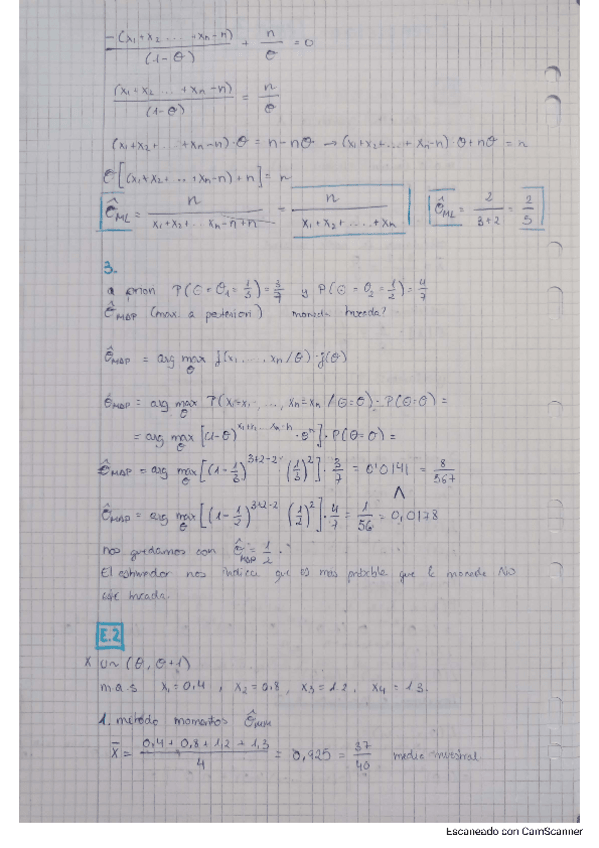 -(x₁+x₂ ... +xn-n) / (1-θ) + n/θ = 0
(x₁+x₂ ... +xn-n) / (1-θ) = n/θ
(x₁+x₂+ ... +xn-n)·θ = n-nθ → (x₁+x₂+...+xn-n)θ+nθ = n
θ[(x₁+x₂+...+xn-n)+n] = n
θ̂ML = n / (x₁+x₂+...xn-n+n) = n / (x₁+x₂+...+xn) θ̂ML = 2/(3+2) = 2/5
3.
a priori P(Θ=θ₁=1/3)=3/7 y P(Θ=θ₂=1/2)=4/7
θ̂MAP (max. a posteriori) moneda trucada?
θ̂MAP = arg max θ f(x₁, ..., xn/θ)·f(θ)
θ̂MAP = arg max θ P(X₁=x₁, ..., Xn=xn/Θ=θ)·P(Θ=θ) =
= arg max θ [(1-θ)^(x₁+x₂...xn-n)·θⁿ]·P(Θ=θ) =
θ̂MAP = arg max θ [(1-1/3)^(3+2-2) (1/3)²]·3/7 = 0'0141 = 8/567
∧
θ̂MAP = arg max θ [(1-1/2)^(3+2-2) (1/2)²]·4/7 = 1/56 = 0,0178
nos quedamos con θ̂MAP = 1/2.
El estimador nos indica que es más probable que la moneda NO
esté trucada.
E.2
X U~(θ, θ+1)
m.a.s x₁=0,4 , x₂=0,8 , x₃=1,2 , x₄=1,3.
1. método momentos θ̂MM
X̄ = (0,4+0,8+1,2+1,3)/4 = 0,925 = 37/40 media muestral
Escaneado con CamScanner